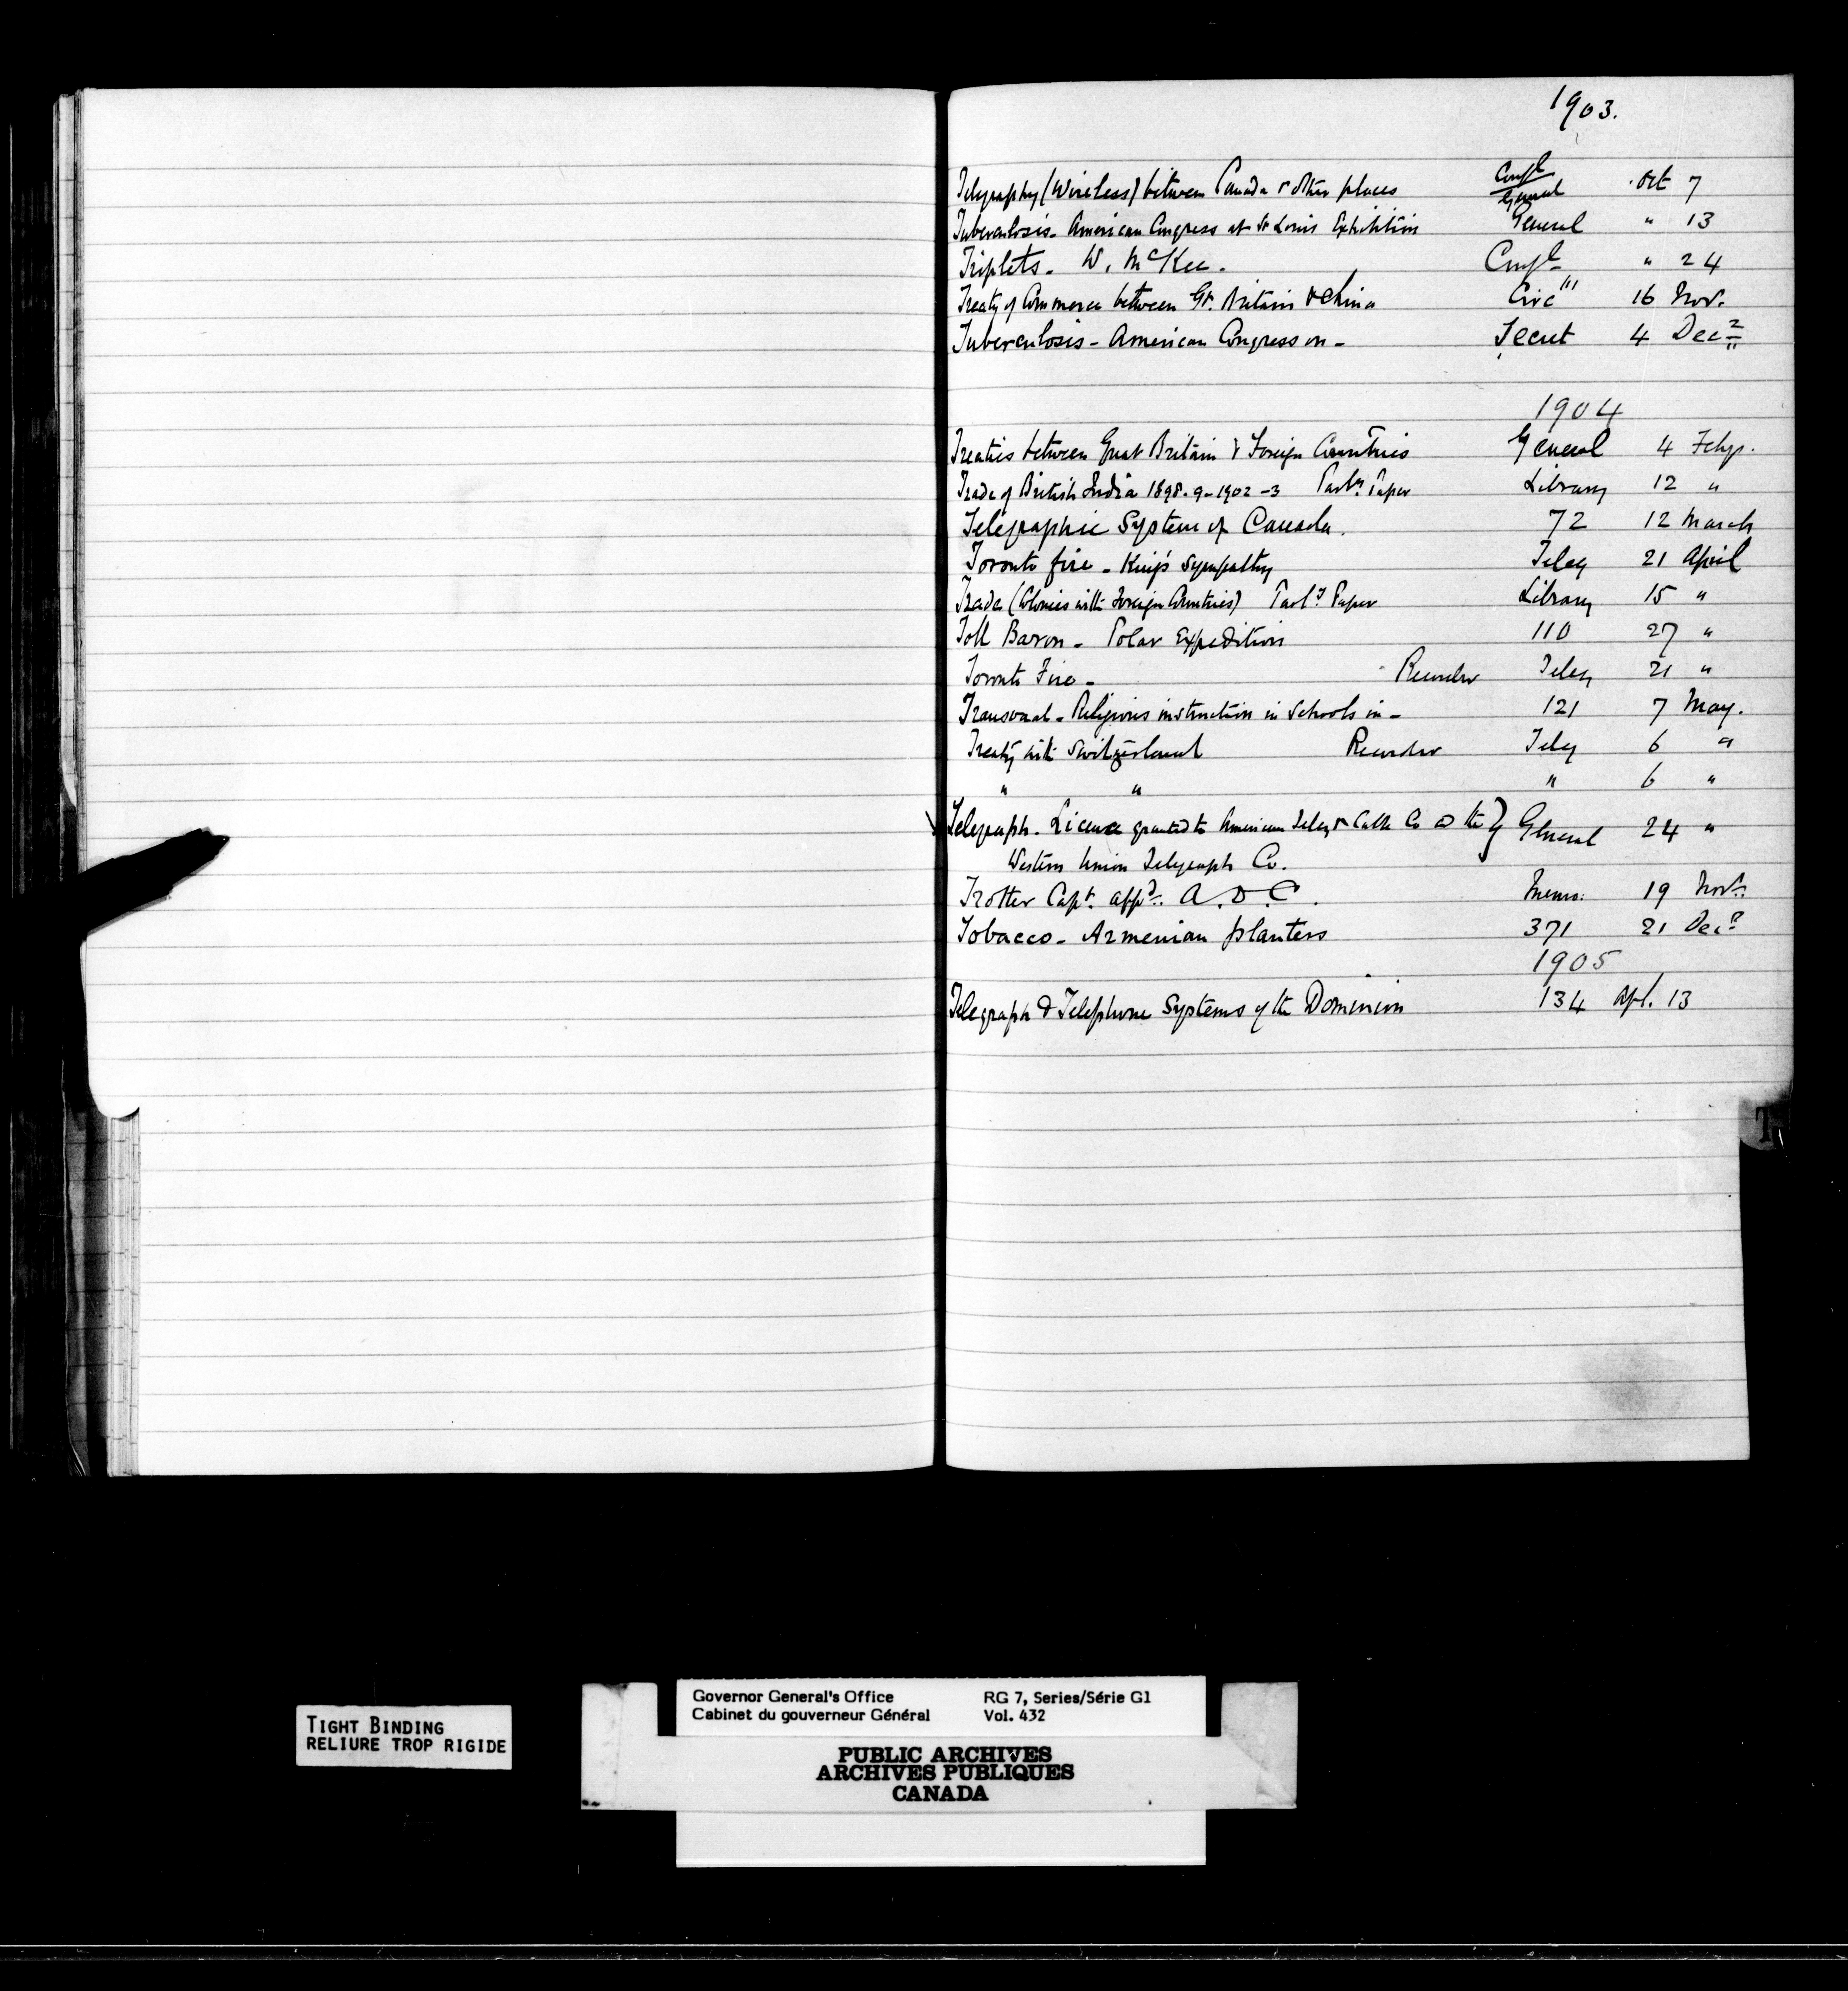 1903.
Telegraphy (Wireless) between Canada & other places Confl General Oct 7
Tuberculosis - American Congress at St Louis Exhibition General " 13
Triplets - W. McKee. Confl " 24
Treaty of Commerce between Gt. Britain & China Circ 16 Nov.
Tuberculosis - American Congress on - Secret 4 Decr
1904
Treaties between Great Britain & Foreign Countries General 4 Feby.
Trade of British India 1898.9-1902-3 Parly Paper Library 12 "
Telegraphic System of Canada. 72 12 March
Toronto fire - King's Sympathy Teleg 21 April
Trade (Colonies with Foreign Countries) Parly Paper Library 15 "
Toll Baron - Polar Expedition 110 27 "
Toronto Fire - Recorder Teleg 21 "
Transvaal - Religious instruction in Schools in - 121 7 May.
Treaty with Switzerland Recorder Teleg 6 "
" " " 6 "
Telegraph - Licence granted to American Teleg & Cable Co & the } General 24 "
Western Union Telegraph Co.
Trotter Capt. appd. A.D.C. Memo: 19 Novr.
Tobacco - Armenian planters 371 21 Decr
1905
Telegraph & Telephone Systems of the Dominion 134 Apl. 13
T
TIGHT BINDING
RELIURE TROP RIGIDE
Governor General's Office RG 7, Series/Série G1
Cabinet du gouverneur Général Vol. 432
PUBLIC ARCHIVES
ARCHIVES PUBLIQUES
CANADA